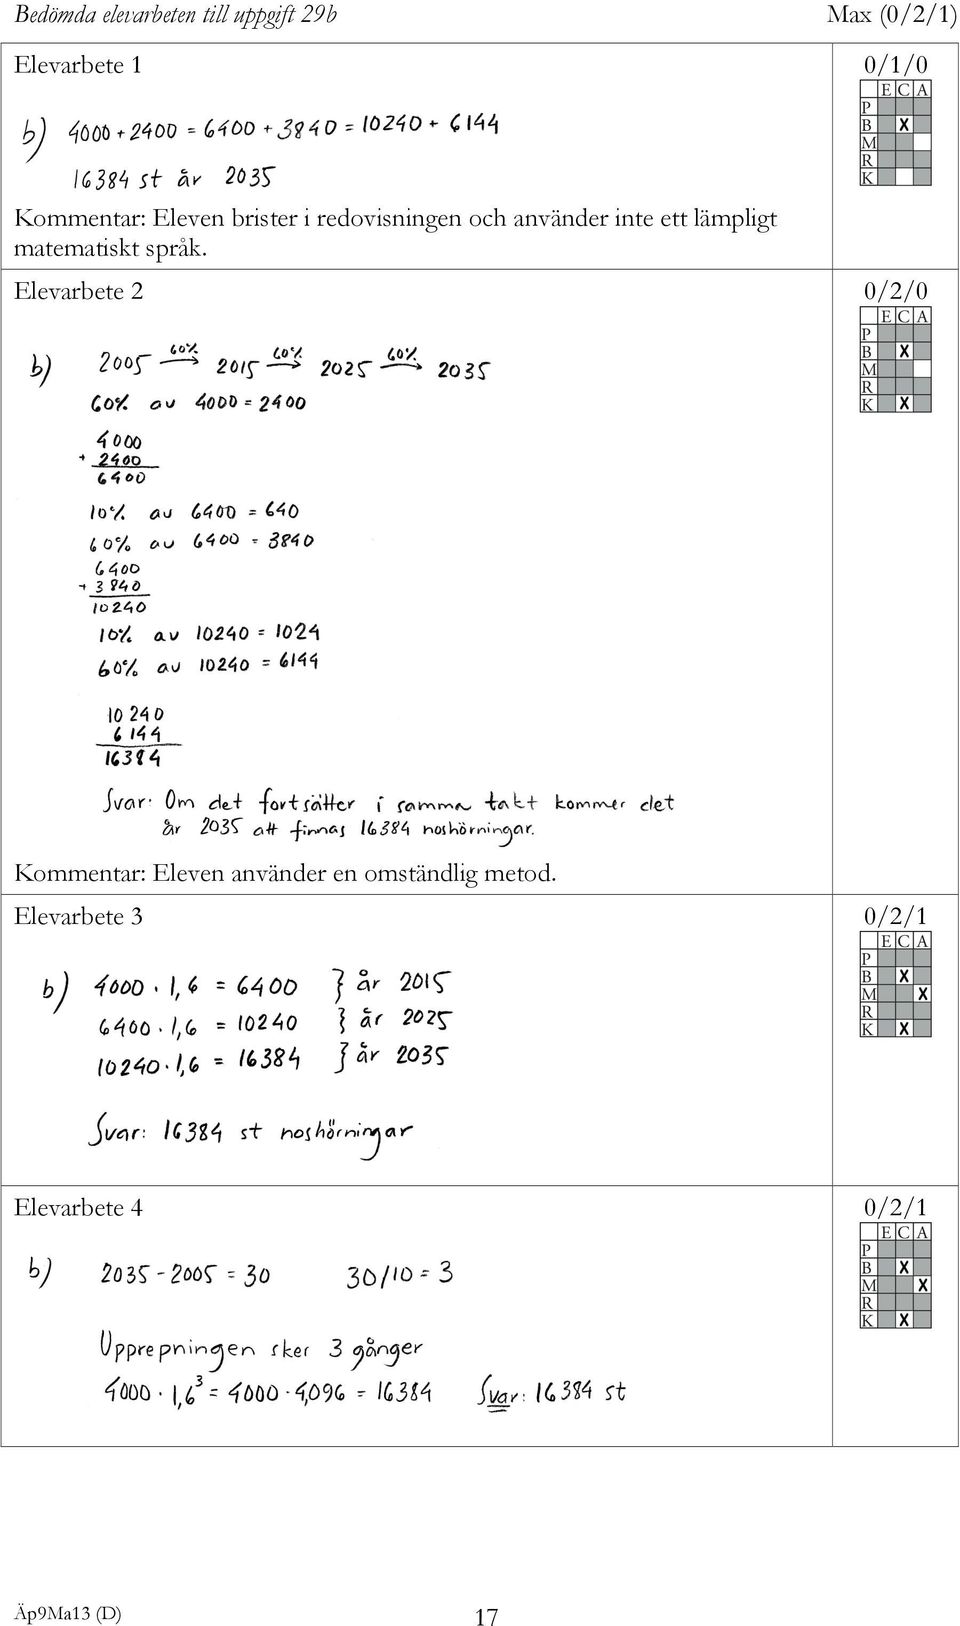 Bedömda elevarbeten till uppgift 29b Max (0/2/1)
Elevarbete 1 0/1/0
E C A
P
b) 4000 + 2400 = 6400 + 3840 = 10240 + 6144
B X
M
16384 st år 2035
R
K
Kommentar: Eleven brister i redovisningen och använder inte ett lämpligt
matematiskt språk.
Elevarbete 2 0/2/0
E C A
P
b) 2005 60% → 2015 60% → 2025 60% → 2035
B X
M
R
60% av 4000 = 2400
K X
4000
+ 2400
6400
10% av 6400 = 640
60% av 6400 = 3840
6400
+ 3840
10240
10% av 10240 = 1024
60% av 10240 = 6144
10240
6144
16384
Svar: Om det fortsätter i samma takt kommer det
år 2035 att finnas 16384 noshörningar.
Kommentar: Eleven använder en omständlig metod.
Elevarbete 3 0/2/1
E C A
P
b) 4000 · 1,6 = 6400 } år 2015
B X
M X
6400 · 1,6 = 10240 } år 2025
R
K X
10240 · 1,6 = 16384 } år 2035
Svar: 16384 st noshörningar
Elevarbete 4 0/2/1
E C A
P
b) 2035 - 2005 = 30 30/10 = 3
B X
M X
R
K X
Upprepningen sker 3 gånger
4000 · 1,6³ = 4000 · 4,096 = 16384 Svar: 16384 st
Äp9Ma13 (D) 17